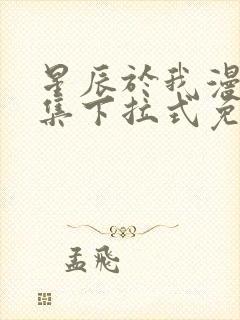 星辰於我漫
集下拉式免
孟飛